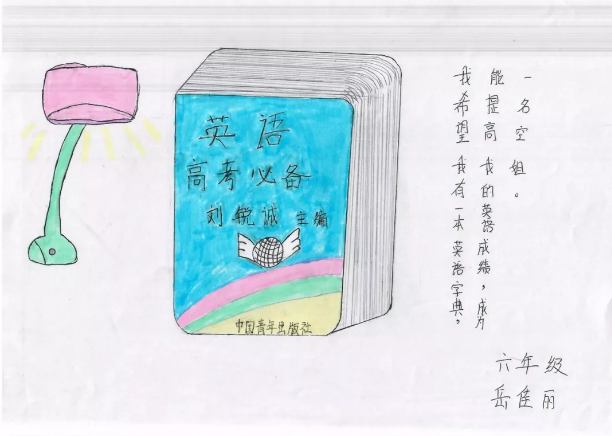 英语
高考必备
刘锐诚 主编
中国青年出版社
我希望我有一本英语字典,
能提高我的英语成绩,成为
一名空姐。
六年级
岳佳丽